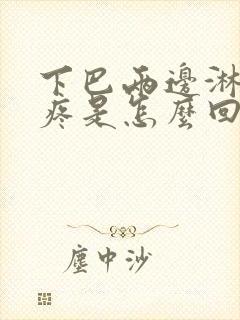 下巴兩邊淋
疼是怎麼回
塵中沙